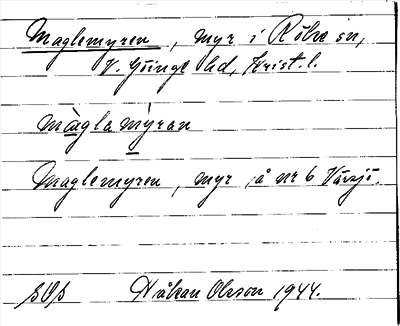 Maglemyren, myr i Röke sn,
V. Göinge hd, Krist. l.
màgla mýran
Maglemyren, myr å nr 6 Värsjö.
Håkan Olsson 1944.